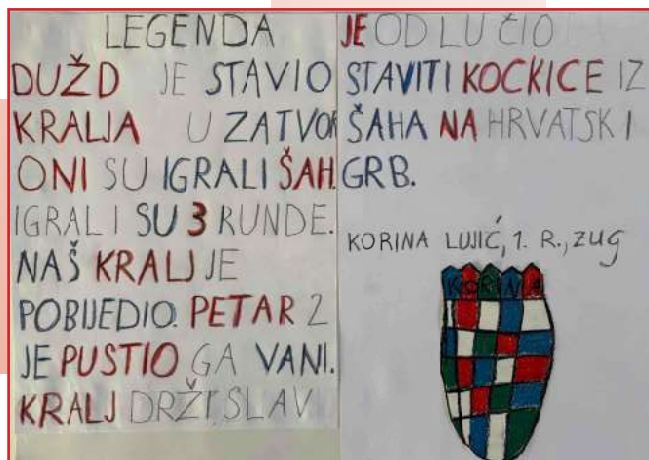 LEGENDA
DUŽD JE STAVIO
KRALJA U ZATVOR
ONI SU IGRALI ŠAH.
IGRALI SU 3 RUNDE.
NAŠ KRALJ JE
POBIJEDIO. PETAR 2
JE PUSTIO GA VANI.
KRALJ DRŽISLAV
JE ODLUČIO
STAVITI KOCKICE IZ
ŠAHA NA HRVATSKI
GRB.
KORINA LUJIĆ, 1. R., ZUG
KORINA